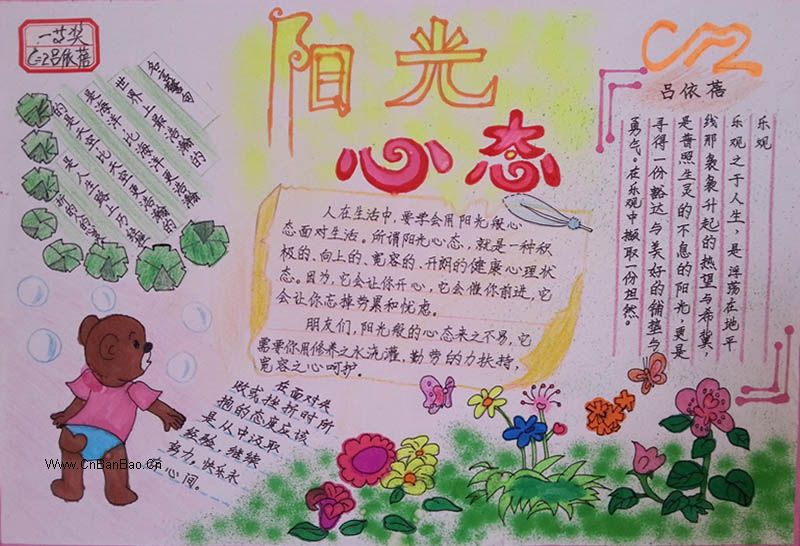 一等奖
吕依蓓
阳光
心态
吕依蓓
名言警句
世界上最浩瀚的
是海洋，比海洋更浩瀚
的是天空，比天空更浩瀚的
是人生路上历
人在生活中，要学会用阳光般心
态面对生活。所谓阳光心态，就是一种积
极的、向上的、宽容的、开朗的健康心理状
态。因为，它会让你开心，它会催你前进，它
会让你忘掉劳累和忧虑。
朋友们，阳光般的心态来之不易，它
需要你用修养之水浇灌，勤劳的力扶持，
宽容之心呵护。
乐观
乐观之于人生，是浮荡在地平
线那袅袅升起的热望与希冀，
是普照生灵的不息的阳光，更是
寻得一份豁达与美好的铺垫与
勇气。在乐观中撷取一份坦然。
在面对失
败或挫折时所
抱的态度应该
是从中汲取
经验，继续
努力，快乐永
在心间。
Www.CnBanBao.Cn